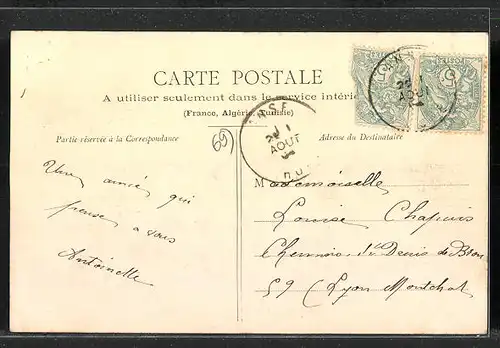 CARTE POSTALE
A utiliser seulement dans le service intérie
(France, Algérie, Tunisie)
Partie réservée à la Correspondance
Adresse du Destinataire
(69)
AOUT
AOUT
Une amie qui
pense a vous
Antoinette
Mademoiselle
Louise Chapuis
Chemin St Denis de Bron
59 (Lyon Montchat